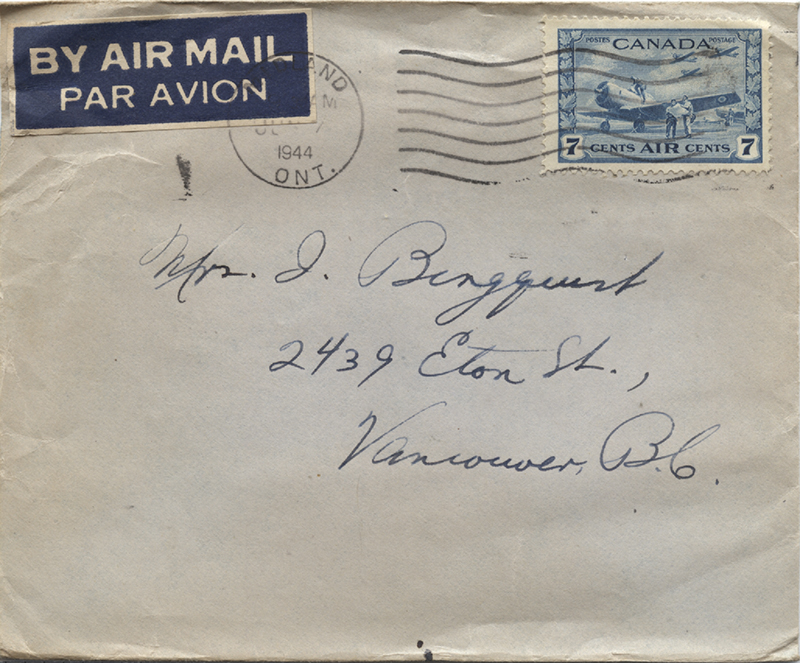 BY AIR MAIL
PAR AVION
1944
ONT.
POSTES CANADA POSTAGE
7 CENTS AIR CENTS 7
Mrs. I. Bergquist
2439 Eton St.,
Vancouver, B.C.